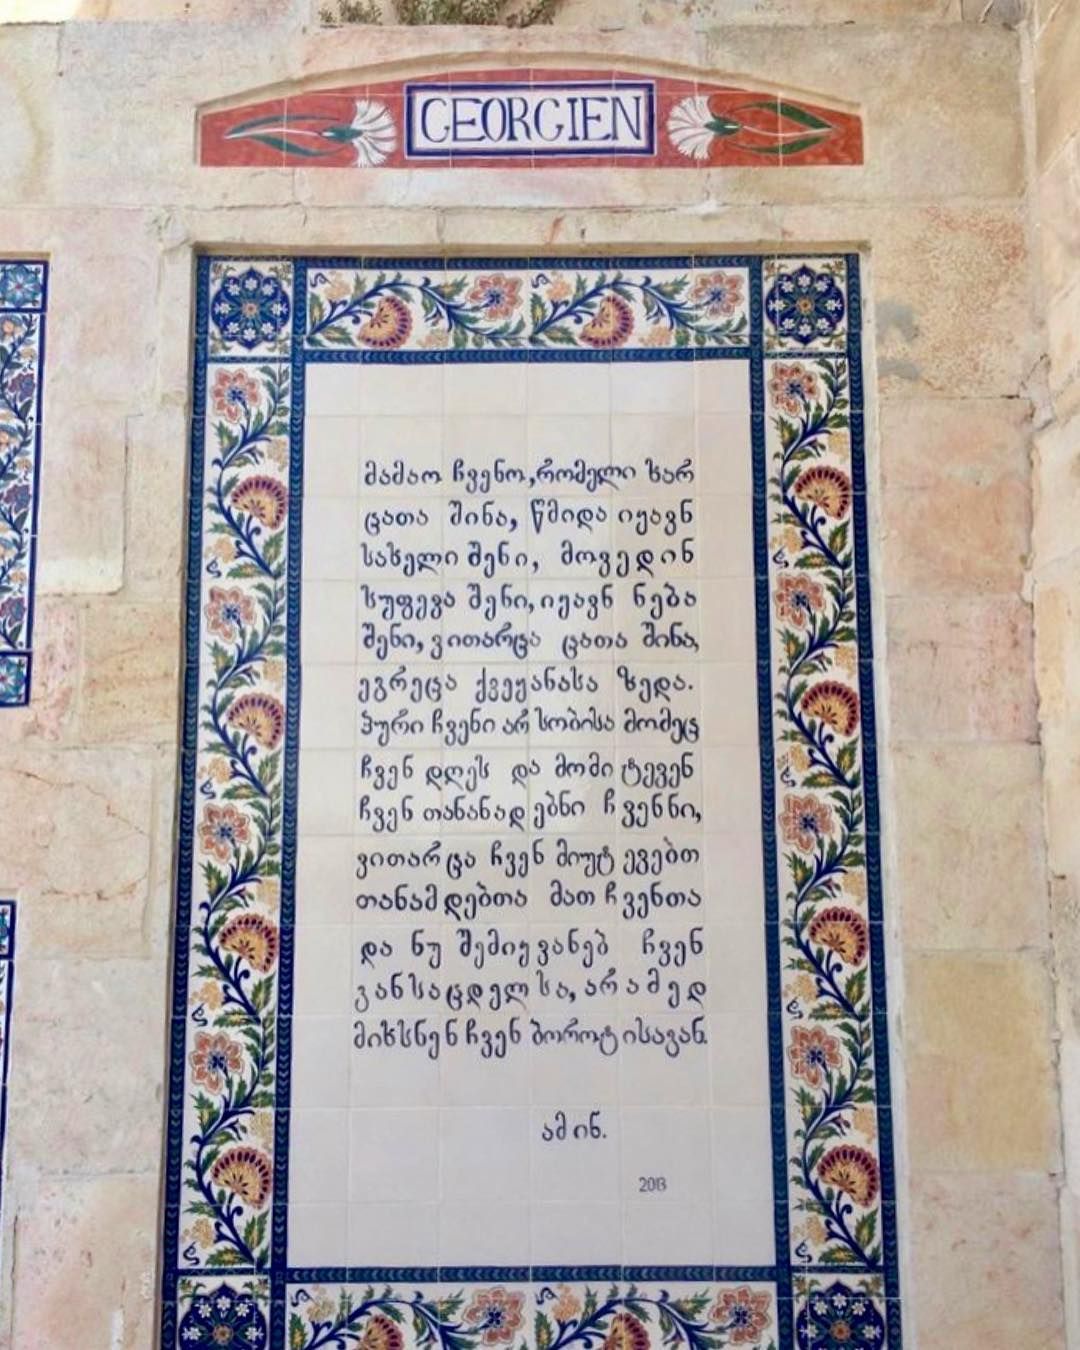 GEORGIEN
მამაო ჩვენო, რომელი ხარ
ცათა შინა, წმიდა იყავნ
სახელი შენი, მოვედინ
სუფევა შენი, იყავნ ნება
შენი, ვითარცა ცათა შინა,
ეგრეცა ქვეყანასა ზედა.
პური ჩვენი არსობისა მომეც
ჩვენ დღეს და მომიტევენ
ჩვენ თანანადებნი ჩვენნი,
ვითარცა ჩვენ მიუტევებთ
თანამდებთა მათ ჩვენთა
და ნუ შემიყვანებ ჩვენ
განსაცდელსა, არამედ
მიხსნენ ჩვენ ბოროტისაგან.
ამინ.
2013